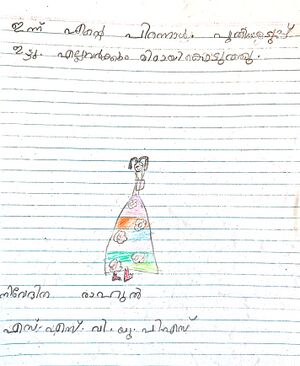 ഇന്ന് എന്റെ പിറന്നാൾ. പുതിയഉടുപ്പ്
ഇട്ടു. എല്ലാവർക്കും മിഠായി കൊടുത്തു.
നിവേദിത രാഹുൽ
എസ്. എസ്. വി. യു. പി എസ്